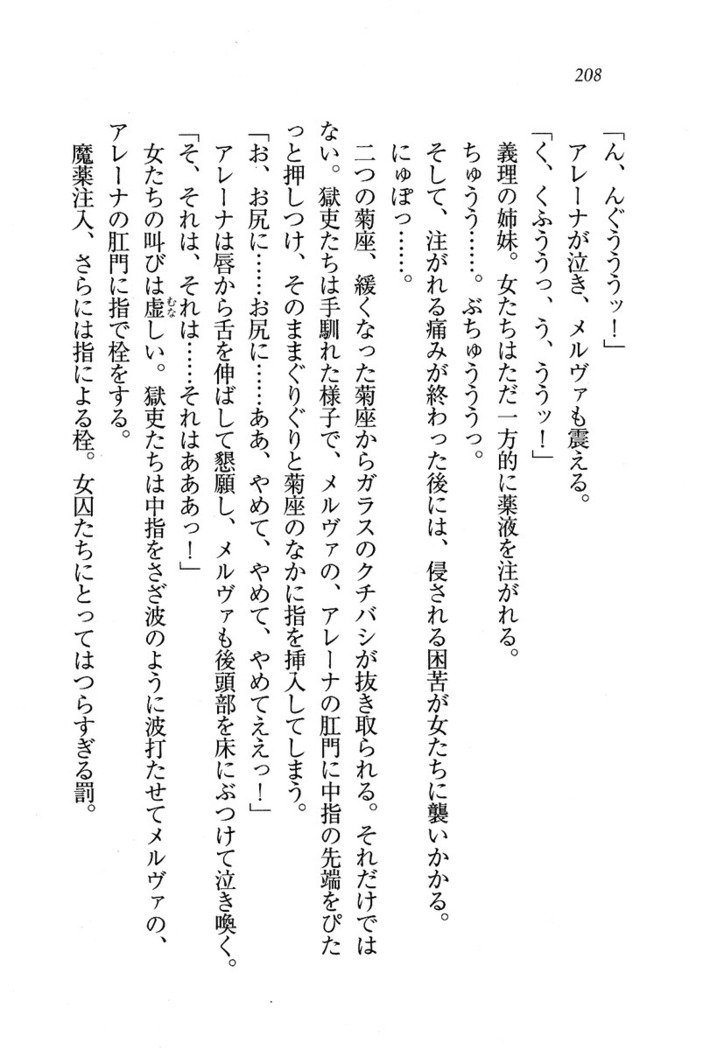 208
「ん、んぐううッ！」
アレーナが泣き、メルヴァも震える。
「く、くふううっ、う、ううッ！」
義理の姉妹。女たちはただ一方的に薬液を注がれる。
ちゅうう……。ぶちゅうううっ。
そして、注がれる痛みが終わった後には、侵される困苦が女たちに襲いかかる。
にゅぽっ……。
二つの菊座、緩くなった菊座からガラスのクチバシが抜き取られる。それだけでは
ない。獄吏たちは手馴れた様子で、メルヴァの、アレーナの肛門に中指の先端をぴた
っと押しつけ、そのままぐりぐりと菊座のなかに指を挿入してしまう。
「お、お尻に……お尻に……ああ、やめて、やめて、やめてええっ！」
アレーナは唇から舌を伸ばして懇願し、メルヴァも後頭部を床にぶつけて泣き喚く。
「そ、それは、それは……それはあああっ！」
女たちの叫びは虚むなしい。獄吏たちは中指をさざ波のように波打たせてメルヴァの、
アレーナの肛門に指で栓をする。
魔薬注入、さらには指による栓。女囚たちにとってはつらすぎる罰。